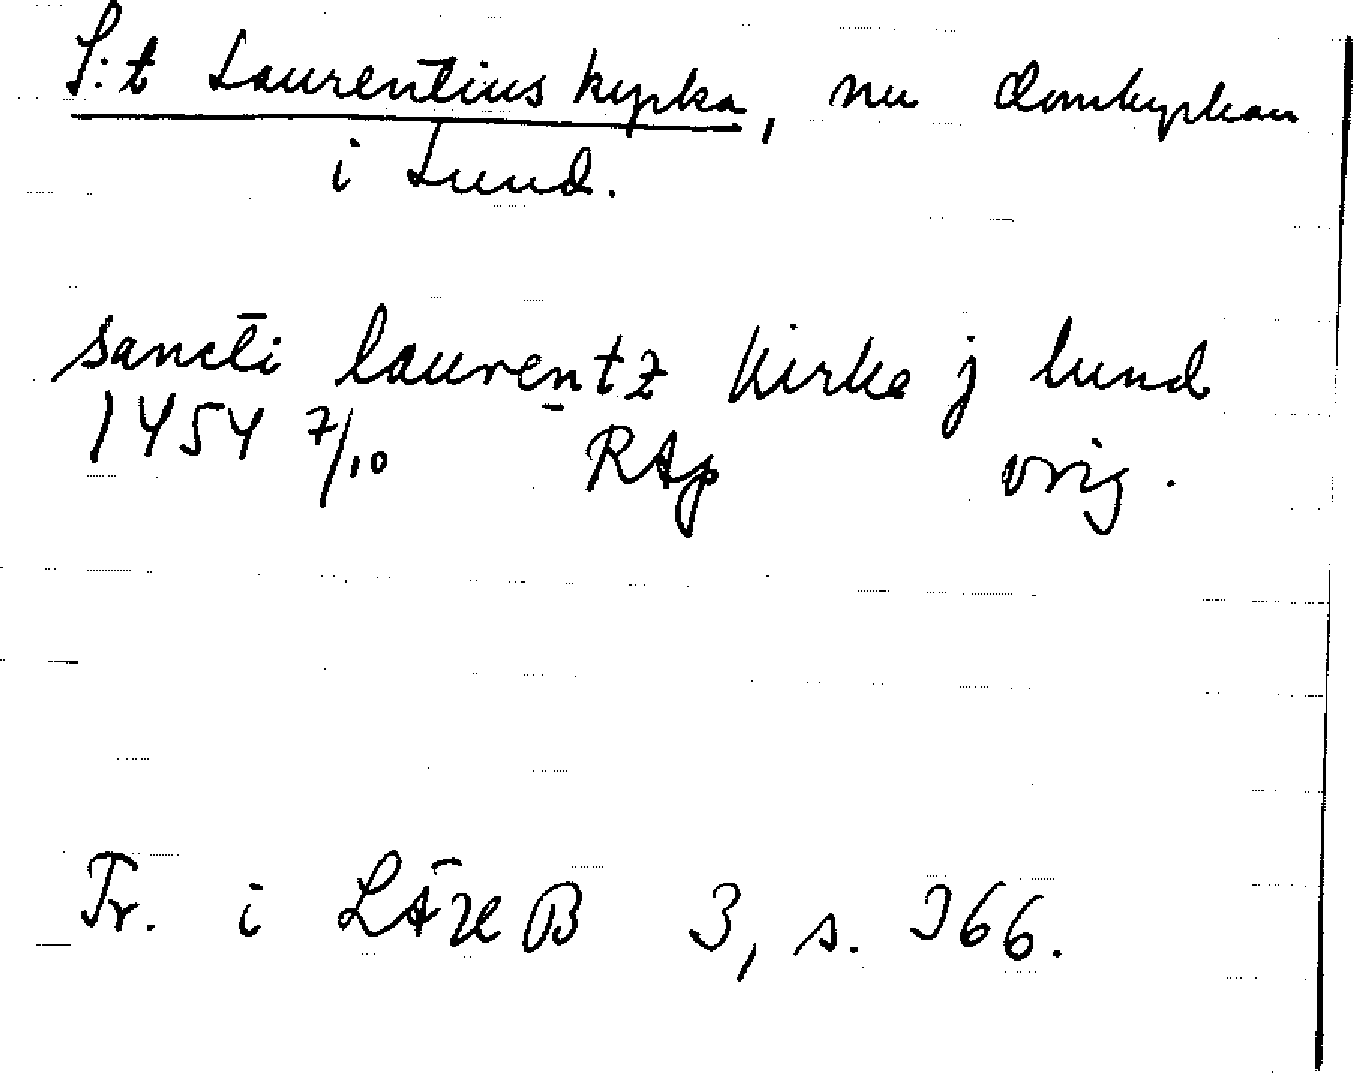 S:t Laurentius kyrka, nu domkyrkan
i Lund.
sancti laurentz kirke j lund
1454 7/10 RAp orig.
Tr. i LÄUB 3, s. 366.